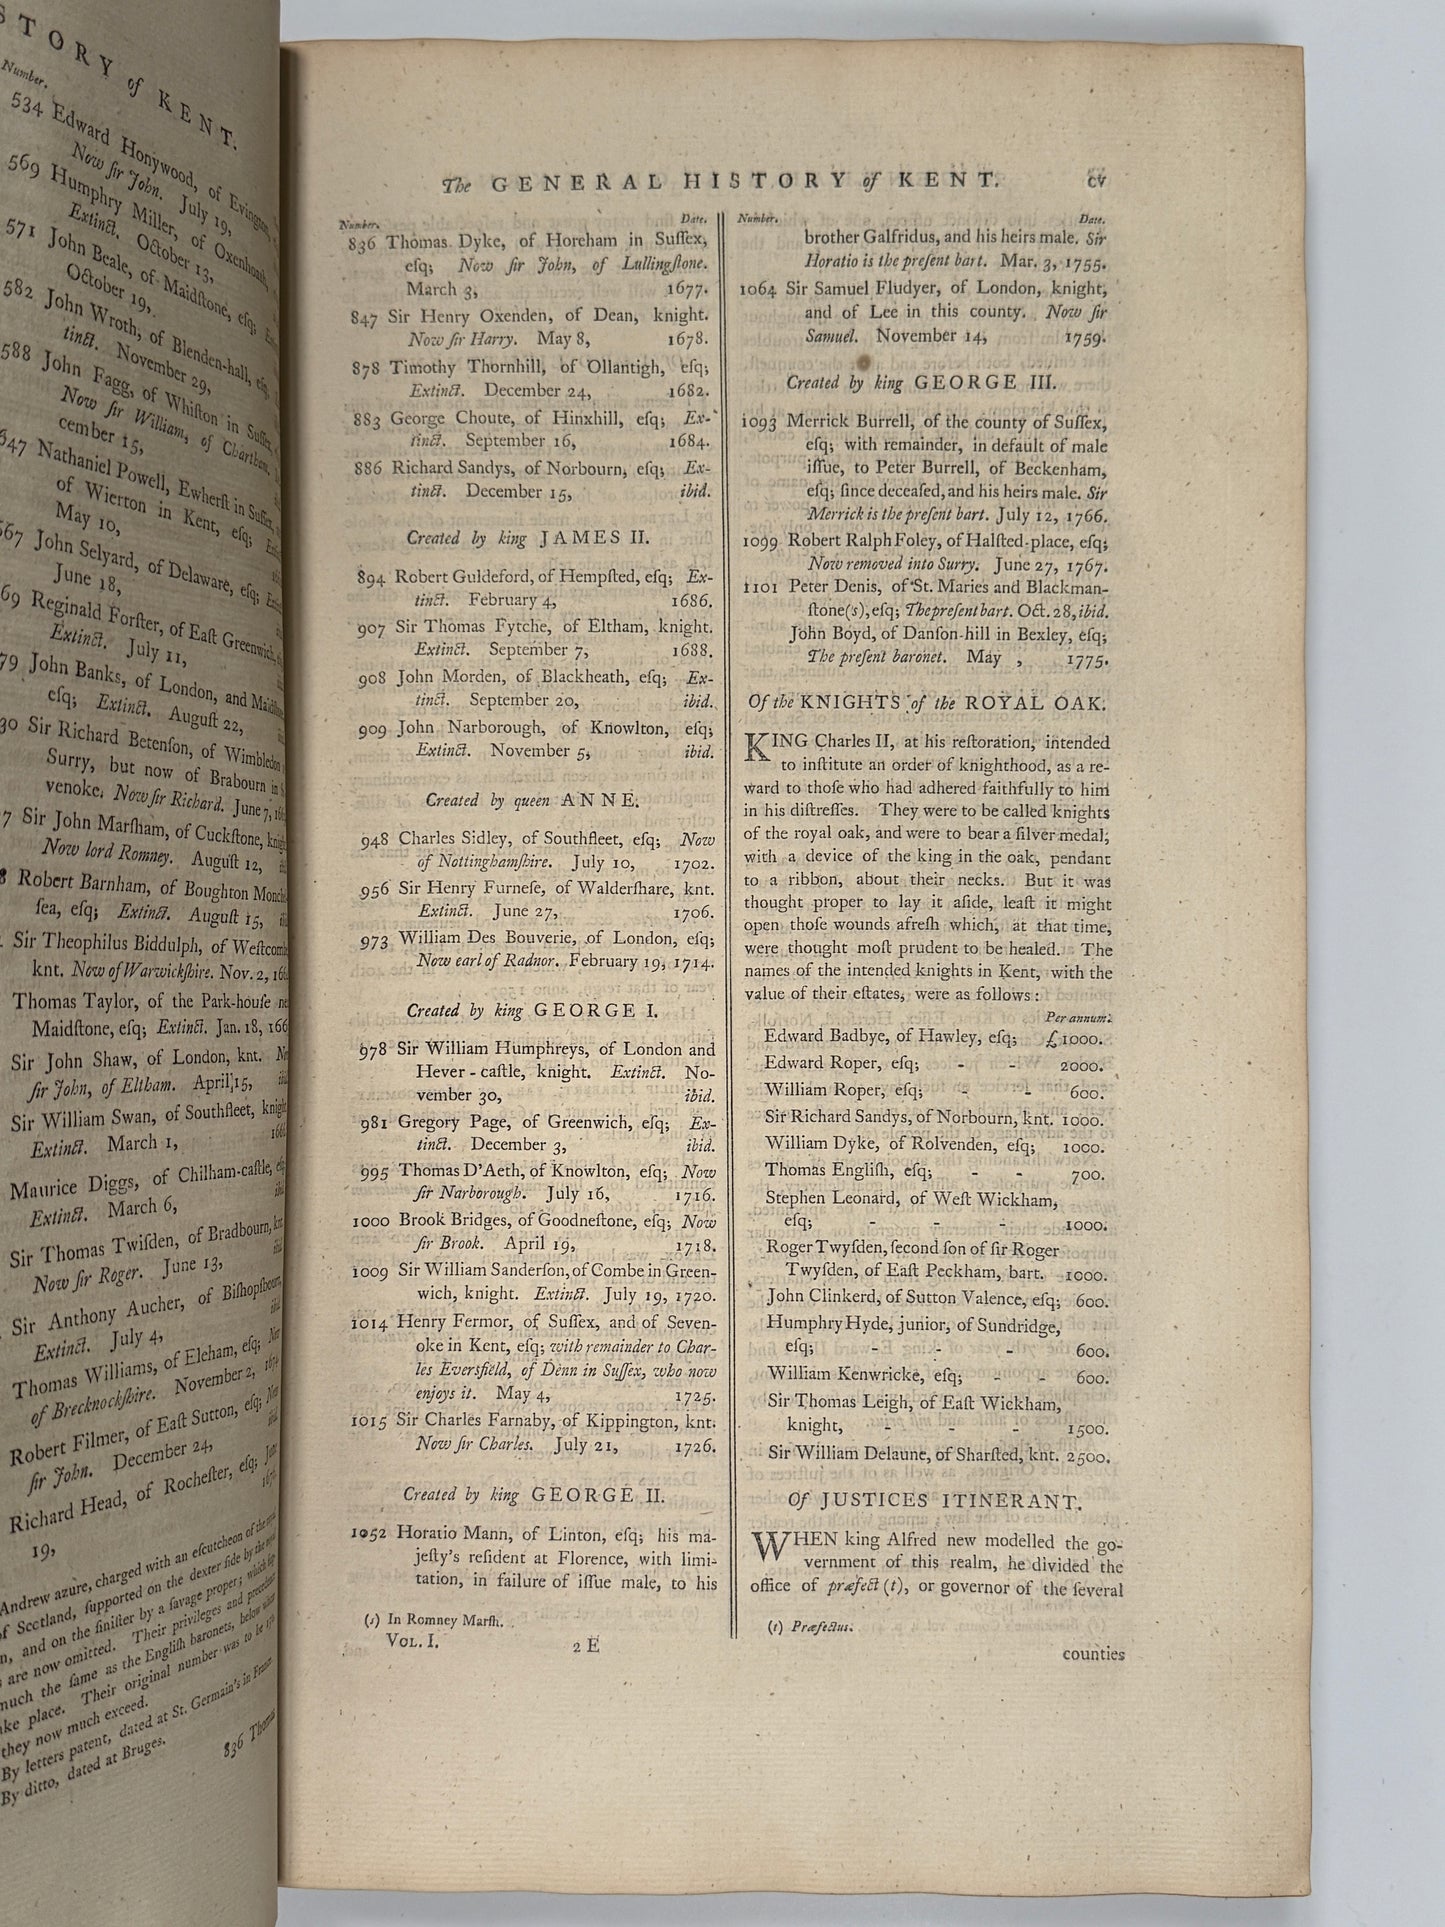 STORY of KENT.
Number.
534 Edward Honywood, of Evington,
Now ſir John. July 19,
569 Humphry Miller, of Oxenhoath,
Extinct. October 13,
571 John Beale, of Maidſtone, eſq;
October 19,
582 John Wroth, of Blenden-hall, eſq;
tinct. November 29,
588 John Fagg, of Whiſton in Suſſex,
Now ſir William, of Chartham,
cember 15,
647 Nathaniel Powell, Ewherſt in Suſſex,
of Wierton in Kent, eſq;
May 10,
667 John Selyard, of Delaware, eſq;
June 18,
69 Reginald Forſter, of Eaſt Greenwich,
Extinct. July 11,
79 John Banks, of London, and
eſq; Extinct. Auguſt 22,
30 Sir Richard Betenſon, of Wimbledon
Surry, but now of Brabourn in
venoke. Now ſir Richard. June 7,
7 Sir John Marſham, of Cuckſtone,
Now lord Romney. Auguſt 12,
8 Robert Barnham, of Boughton
ſea, eſq; Extinct. Auguſt 15,
Sir Theophilus Biddulph, of
knt. Now of Warwickſhire. Nov. 2,
Thomas Taylor, of the Park-houſe
Maidſtone, eſq; Extinct. Jan. 18,
Sir John Shaw, of London, knt.
ſir John, of Eltham. April 15,
Sir William Swan, of Southfleet,
Extinct. March 1,
Maurice Diggs, of Chilham-caſtle,
Extinct. March 6,
Sir Thomas Twiſden, of Bradbourn,
Now ſir Roger. June 13,
Sir Anthony Aucher, of
Extinct. July 4,
Thomas Williams, of Elcham, eſq;
of Brecknockſhire. November 2,
Robert Filmer, of Eaſt Sutton, eſq;
ſir John. December 24,
Richard Head, of Rocheſter, eſq;
19,
Andrew azure, charged with an eſcutcheon of the
of Scotland, ſupported on the dexter ſide by the
and on the ſiniſter by a ſavage proper; which
are now omitted. Their privileges and
much the ſame as the Engliſh baronets, below
place. Their original number was to be
they now much exceed.
By letters patent, dated at St. Germain's in France
By ditto, dated at Bruges.
836 Thomas
The GENERAL HISTORY of KENT. cv
Number. Date.
836 Thomas Dyke, of Horeham in Suſſex,
eſq; Now ſir John, of Lullingſtone.
March 3, 1677.
847 Sir Henry Oxenden, of Dean, knight.
Now ſir Harry. May 8, 1678.
878 Timothy Thornhill, of Ollantigh, eſq;
Extinct. December 24, 1682.
883 George Choute, of Hinxhill, eſq; Ex-
tinct. September 16, 1684.
886 Richard Sandys, of Norbourn, eſq; Ex-
tinct. December 15, ibid.
Created by king JAMES II.
894 Robert Guldeford, of Hempſted, eſq; Ex-
tinct. February 4, 1686.
907 Sir Thomas Fytche, of Eltham, knight.
Extinct. September 7, 1688.
908 John Morden, of Blackheath, eſq; Ex-
tinct. September 20, ibid.
909 John Narborough, of Knowlton, eſq;
Extinct. November 5, ibid.
Created by queen ANNE.
948 Charles Sidley, of Southfleet, eſq; Now
of Nottinghamſhire. July 10, 1702.
956 Sir Henry Furneſe, of Walderſhare, knt.
Extinct. June 27, 1706.
973 William Des Bouverie, of London, eſq;
Now earl of Radnor. February 19, 1714.
Created by king GEORGE I.
978 Sir William Humphreys, of London and
Hever-caſtle, knight. Extinct. No-
vember 30, ibid.
981 Gregory Page, of Greenwich, eſq; Ex-
tinct. December 3, ibid.
995 Thomas D'Aeth, of Knowlton, eſq; Now
ſir Narborough. July 16, 1716.
1000 Brook Bridges, of Goodneſtone, eſq; Now
ſir Brook. April 19, 1718.
1009 Sir William Sanderſon, of Combe in Green-
wich, knight. Extinct. July 19, 1720.
1014 Henry Fermor, of Suſſex, and of Seven-
oke in Kent, eſq; with remainder to Char-
les Eversfield, of Denn in Suſſex, who now
enjoys it. May 4, 1725.
1015 Sir Charles Farnaby, of Kippington, knt.
Now ſir Charles. July 21, 1726.
Created by king GEORGE II.
1052 Horatio Mann, of Linton, eſq; his ma-
jeſty's reſident at Florence, with limi-
tation, in failure of iſſue male, to his
(s) In Romney Marſh.
VOL. I. 2 E
Number. Date.
brother Galfridus, and his heirs male. Sir
Horatio is the preſent bart. Mar. 3, 1755.
1064 Sir Samuel Fludyer, of London, knight,
and of Lee in this county. Now ſir
Samuel. November 14, 1759.
Created by king GEORGE III.
1093 Merrick Burrell, of the county of Suſſex,
eſq; with remainder, in default of male
iſſue, to Peter Burrell, of Beckenham,
eſq; ſince deceaſed, and his heirs male. Sir
Merrick is the preſent bart. July 12, 1766.
1099 Robert Ralph Foley, of Halſted-place, eſq;
Now removed into Surry. June 27, 1767.
1101 Peter Denis, of St. Maries and Blackman-
ſtone(s), eſq; The preſent bart. Oct. 28, ibid.
John Boyd, of Danſon-hill in Bexley, eſq;
The preſent baronet. May , 1775.
Of the KNIGHTS of the ROYAL OAK.
KING Charles II, at his reſtoration, intended
to inſtitute an order of knighthood, as a re-
ward to thoſe who had adhered faithfully to him
in his diſtreſſes. They were to be called knights
of the royal oak, and were to bear a ſilver medal,
with a device of the king in the oak, pendant
to a ribbon, about their necks. But it was
thought proper to lay it aſide, leaſt it might
open thoſe wounds afreſh which, at that time,
were thought moſt prudent to be healed. The
names of the intended knights in Kent, with the
value of their eſtates, were as follows:
Per annum.
Edward Badbye, of Hawley, eſq; £1000.
Edward Roper, eſq; - - 2000.
William Roper, eſq; - - 600.
Sir Richard Sandys, of Norbourn, knt. 1000.
William Dyke, of Rolvenden, eſq; 1000.
Thomas Engliſh, eſq; - - 700.
Stephen Leonard, of Weſt Wickham,
eſq; - - - 1000.
Roger Twyſden, ſecond ſon of ſir Roger
Twyſden, of Eaſt Peckham, bart. 1000.
John Clinkerd, of Sutton Valence, eſq; 600.
Humphry Hyde, junior, of Sundridge,
eſq; - - - 600.
William Kenwricke, eſq; - - 600.
Sir Thomas Leigh, of Eaſt Wickham,
knight, - - - 1500.
Sir William Delaune, of Sharſted, knt. 2500.
Of JUSTICES ITINERANT.
WHEN king Alfred new modelled the go-
vernment of this realm, he divided the
office of præfect (t), or governor of the ſeveral
(t) Præfectus.
counties